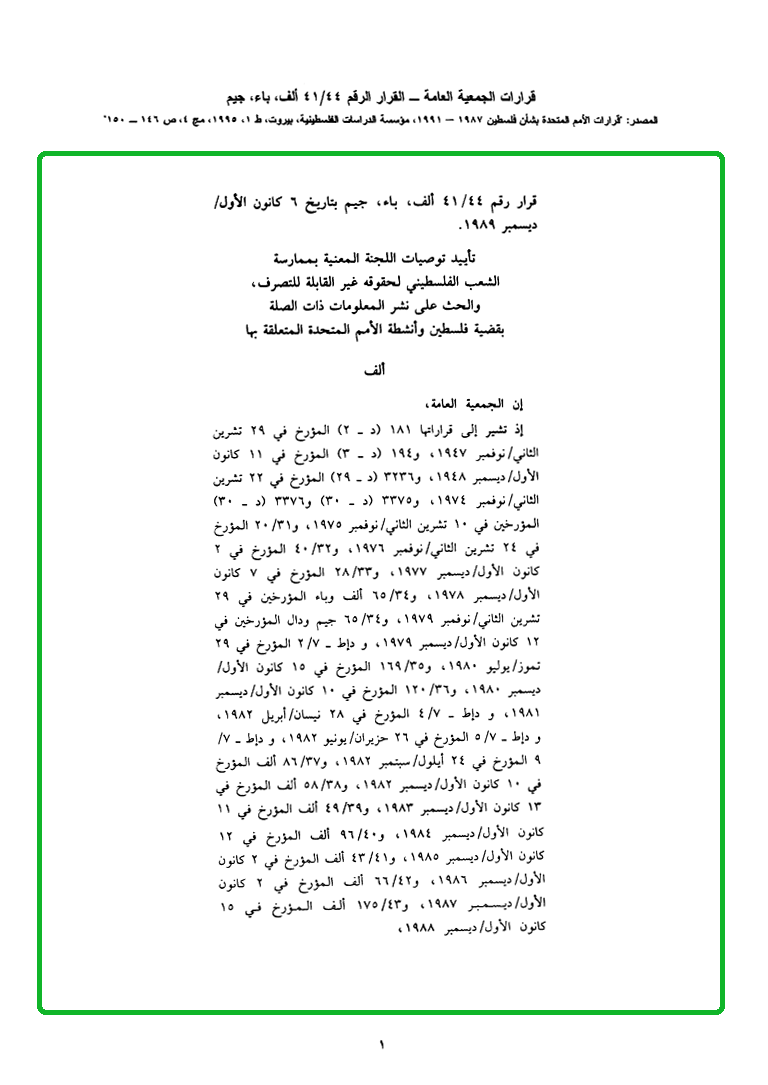 قرارات الجمعية العامة ــ القرار الرقم ٤١/٤٤ ألف، باء، جيم
المصدر: "قرارات الأمم المتحدة بشأن فلسطين ١٩٨٧ – ١٩٩١، مؤسسة الدراسات الفلسطينية، بيروت، ط ١، ١٩٩٥، مج ٤، ص ١٤٦ ــ ١٥٠"
قرار رقم ٤١/٤٤ ألف، باء، جيم بتاريخ ٦ كانون الأول/
ديسمبر ١٩٨٩.
تأييد توصيات اللجنة المعنية بممارسة
الشعب الفلسطيني لحقوقه غير القابلة للتصرف،
والحث على نشر المعلومات ذات الصلة
بقضية فلسطين وأنشطة الأمم المتحدة المتعلقة بها
ألف
إن الجمعية العامة،
إذ تشير إلى قراراتها ١٨١ (د ــ ٢) المؤرخ في ٢٩ تشرين
الثاني/نوفمبر ١٩٤٧، و١٩٤ (د ــ ٣) المؤرخ في ١١ كانون
الأول/ديسمبر ١٩٤٨، و٣٢٣٦ (د ــ ٢٩) المؤرخ في ٢٢ تشرين
الثاني/نوفمبر ١٩٧٤، و٣٣٧٥ (د ــ ٣٠) و٣٣٧٦ (د ــ ٣٠)
المؤرخين في ١٠ تشرين الثاني/نوفمبر ١٩٧٥، و٢٠/٣١ المؤرخ
في ٢٤ تشرين الثاني/نوفمبر ١٩٧٦، و٤٠/٣٢ المؤرخ في ٢
كانون الأول/ديسمبر ١٩٧٧، و٢٨/٣٣ المؤرخ في ٧ كانون
الأول/ديسمبر ١٩٧٨، و٦٥/٣٤ ألف وباء المؤرخين في ٢٩
تشرين الثاني/نوفمبر ١٩٧٩، و٦٥/٣٤ جيم ودال المؤرخين في
١٢ كانون الأول/ديسمبر ١٩٧٩، و دإط ــ ٢/٧ المؤرخ في ٢٩
تموز/يوليو ١٩٨٠، و١٦٩/٣٥ المؤرخ في ١٥ كانون الأول/
ديسمبر ١٩٨٠، و١٢٠/٣٦ المؤرخ في ١٠ كانون الأول/ديسمبر
١٩٨١، و دإط ــ ٤/٧ المؤرخ في ٢٨ نيسان/أبريل ١٩٨٢،
و دإط ــ ٥/٧ المؤرخ في ٢٦ حزيران/يونيو ١٩٨٢، و دإط ــ ٧/
٩ المؤرخ في ٢٤ أيلول/سبتمبر ١٩٨٢، و٨٦/٣٧ ألف المؤرخ
في ١٠ كانون الأول/ديسمبر ١٩٨٢، و٥٨/٣٨ ألف المؤرخ في
١٣ كانون الأول/ديسمبر ١٩٨٣، و٤٩/٣٩ ألف المؤرخ في ١١
كانون الأول/ديسمبر ١٩٨٤، و٩٦/٤٠ ألف المؤرخ في ١٢
كانون الأول/ديسمبر ١٩٨٥، و٤٣/٤١ ألف المؤرخ في ٢ كانون
الأول/ديسمبر ١٩٨٦، و٦٦/٤٢ ألف المؤرخ في ٢ كانون
الأول/ديسمبر ١٩٨٧، و١٧٥/٤٣ ألف المؤرخ في ١٥
كانون الأول/ديسمبر ١٩٨٨،
١